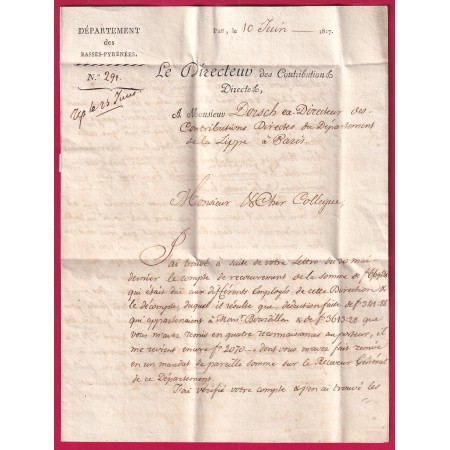 DÉPARTEMENT
des
BASSES-PYRÉNÉES.
N.º 291.
Pau, le 10 Juin 1817.
Le Directeur des Contributions
Directes,
A Monsieur Dorsch ex-Directeur des
Contributions Directes du Département
de la Lippe à Paris.
Monsieur & Cher Collegue,
J'ai trouvé à suite de votre Lettre du 20 mai
dernier le compte de recouvrement de la somme de
qui était due aux différents Employés de cette Direction &
le décompte, duquel il résulte que déduction faite de f. 341-88
qui appartenaient à Mons. Bourdillon & de f. 3613-28 que
vous m'avez remis en quatre reconnaissances au porteur, il
me revient encore f. 2070- dont vous m'avez fait remise
en un mandat de pareille somme sur le Receveur Général
de ce Département.
J'ai vérifié votre compte & j'en ai trouvé les